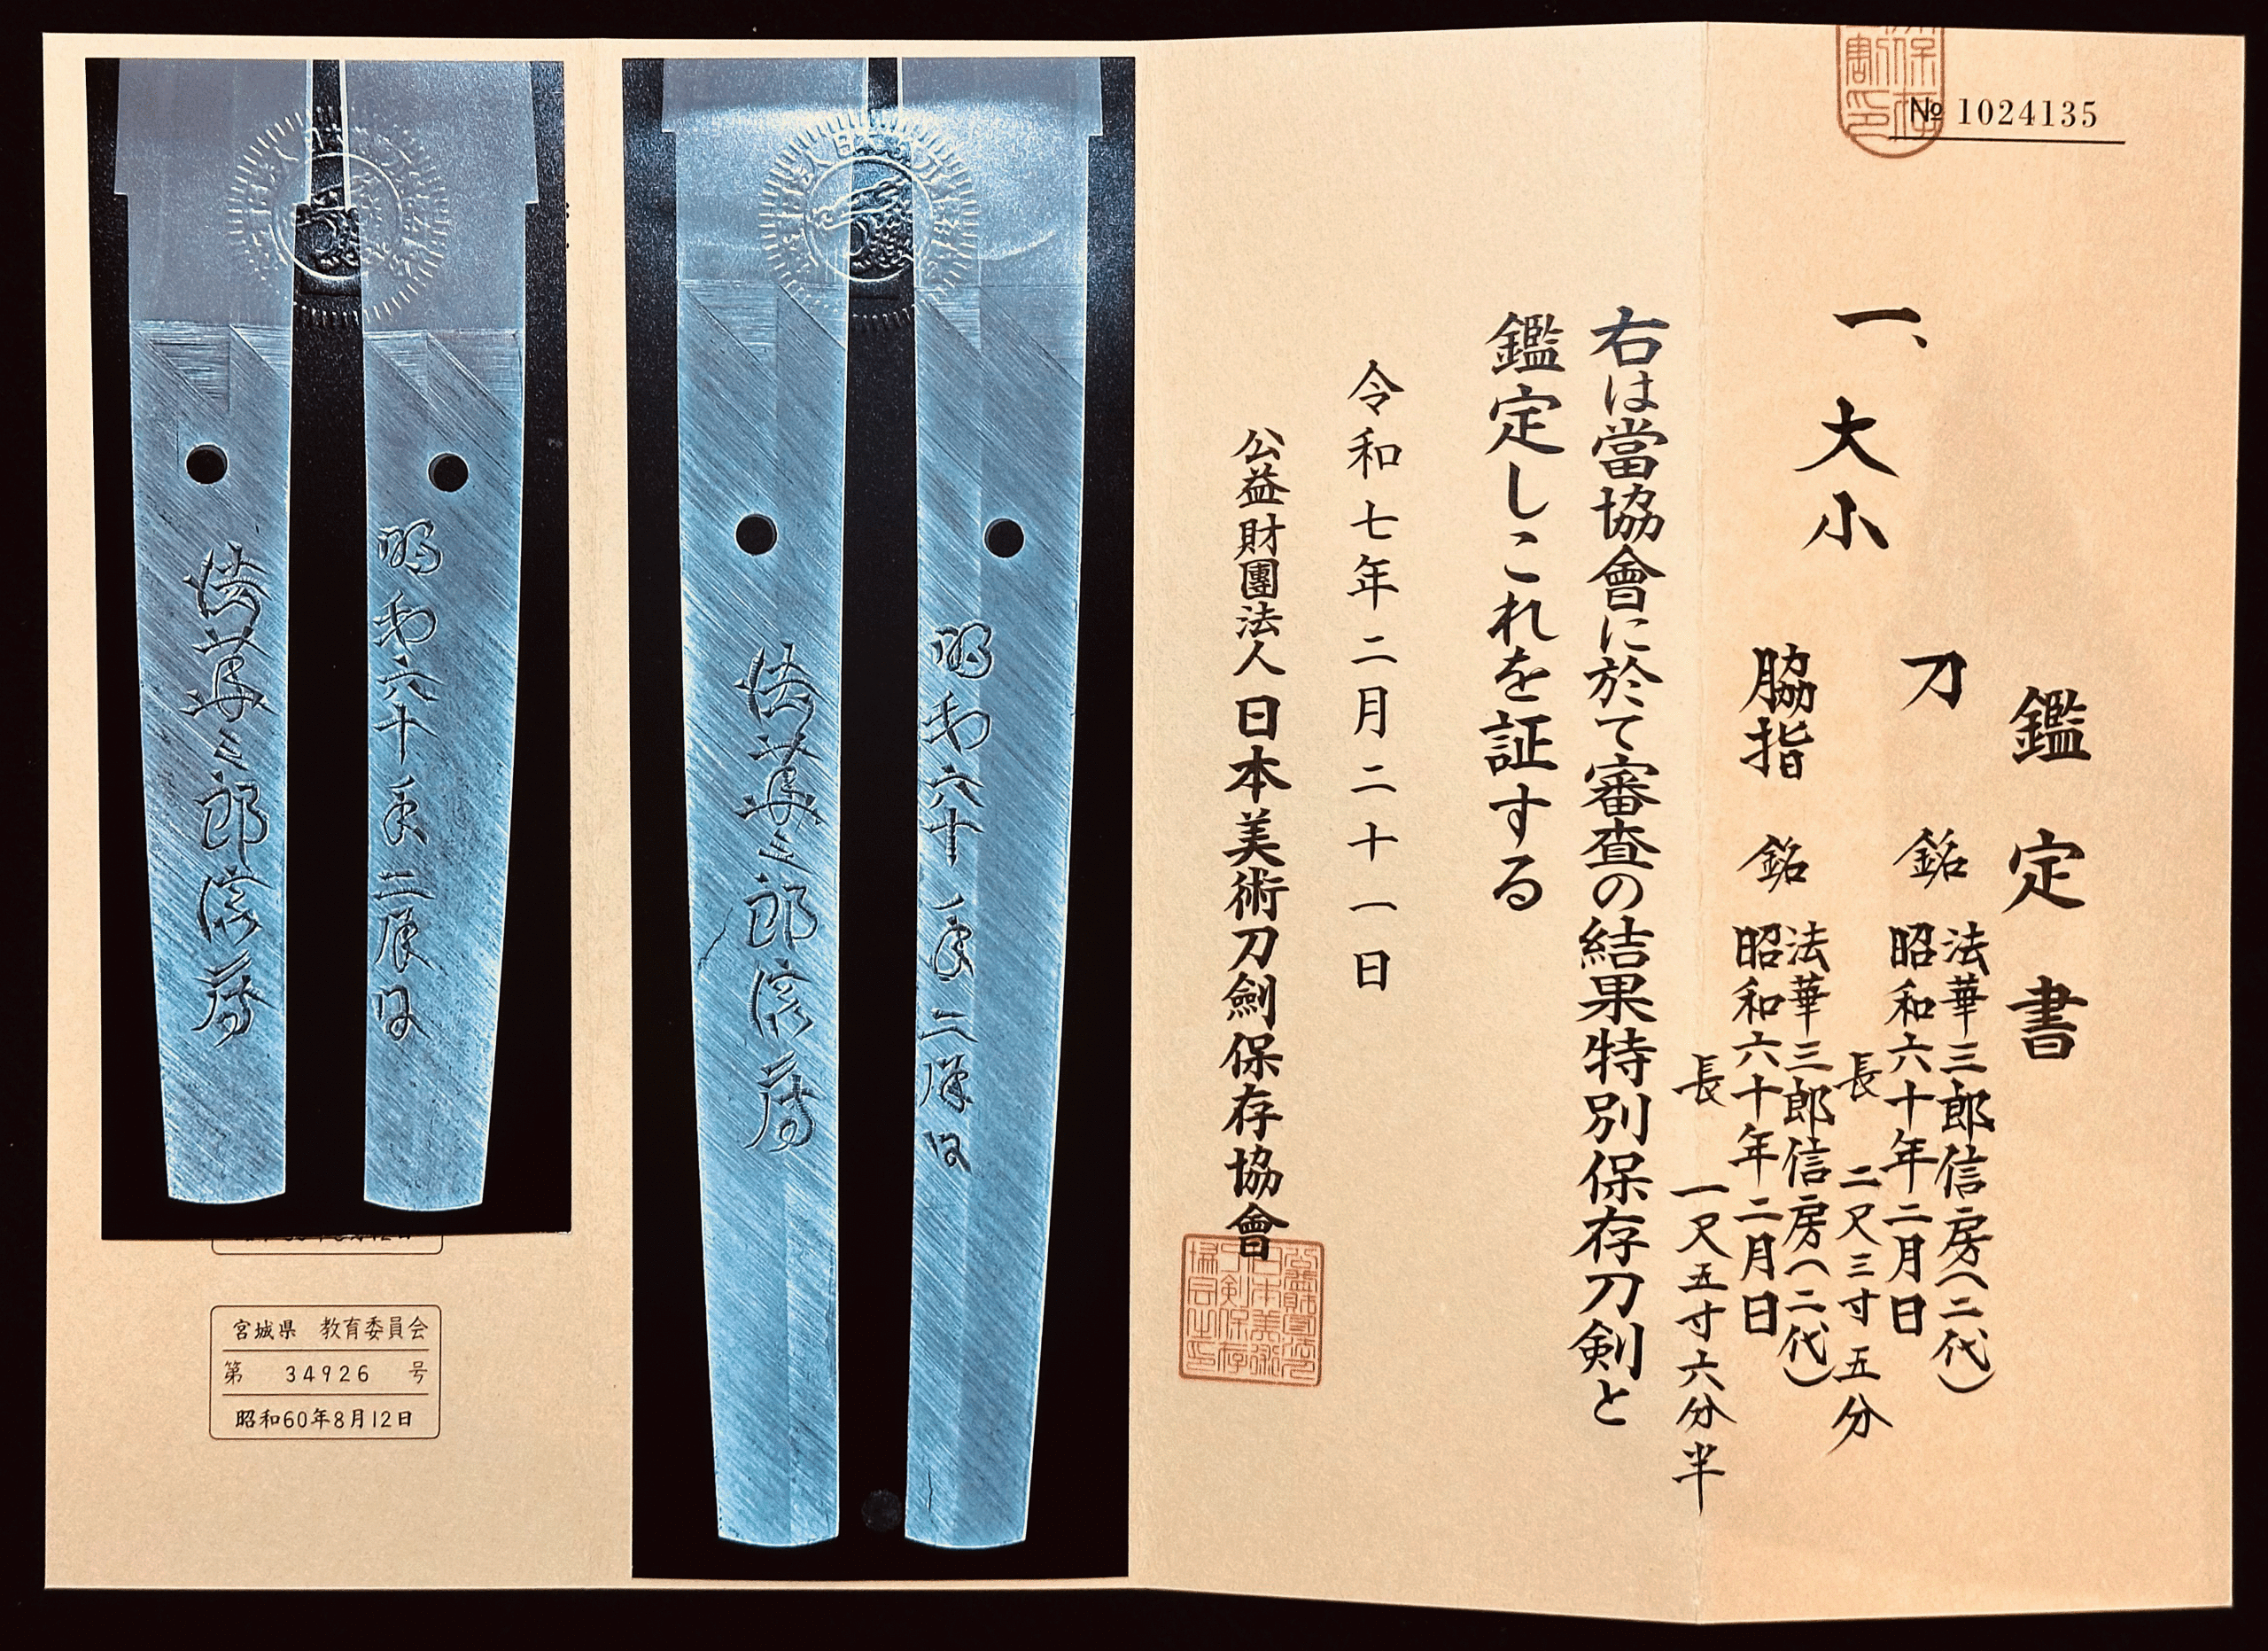 № 1024135
鑑定書
一、大小
刀 銘 法華三郎信房(二代)
昭和六十年二月日
長 二尺三寸五分
脇指 銘 法華三郎信房(二代)
昭和六十年二月日
長 一尺五寸六分半
右は當協會に於て審査の結果特別保存刀剣と
鑑定しこれを証する
令和七年二月二十一日
公益財團法人日本美術刀劍保存協會
昭和六十年二月日
法華三郎信房
昭和六十年二月日
法華三郎信房
宮城県 教育委員会
第 34926 号
昭和60年8月12日